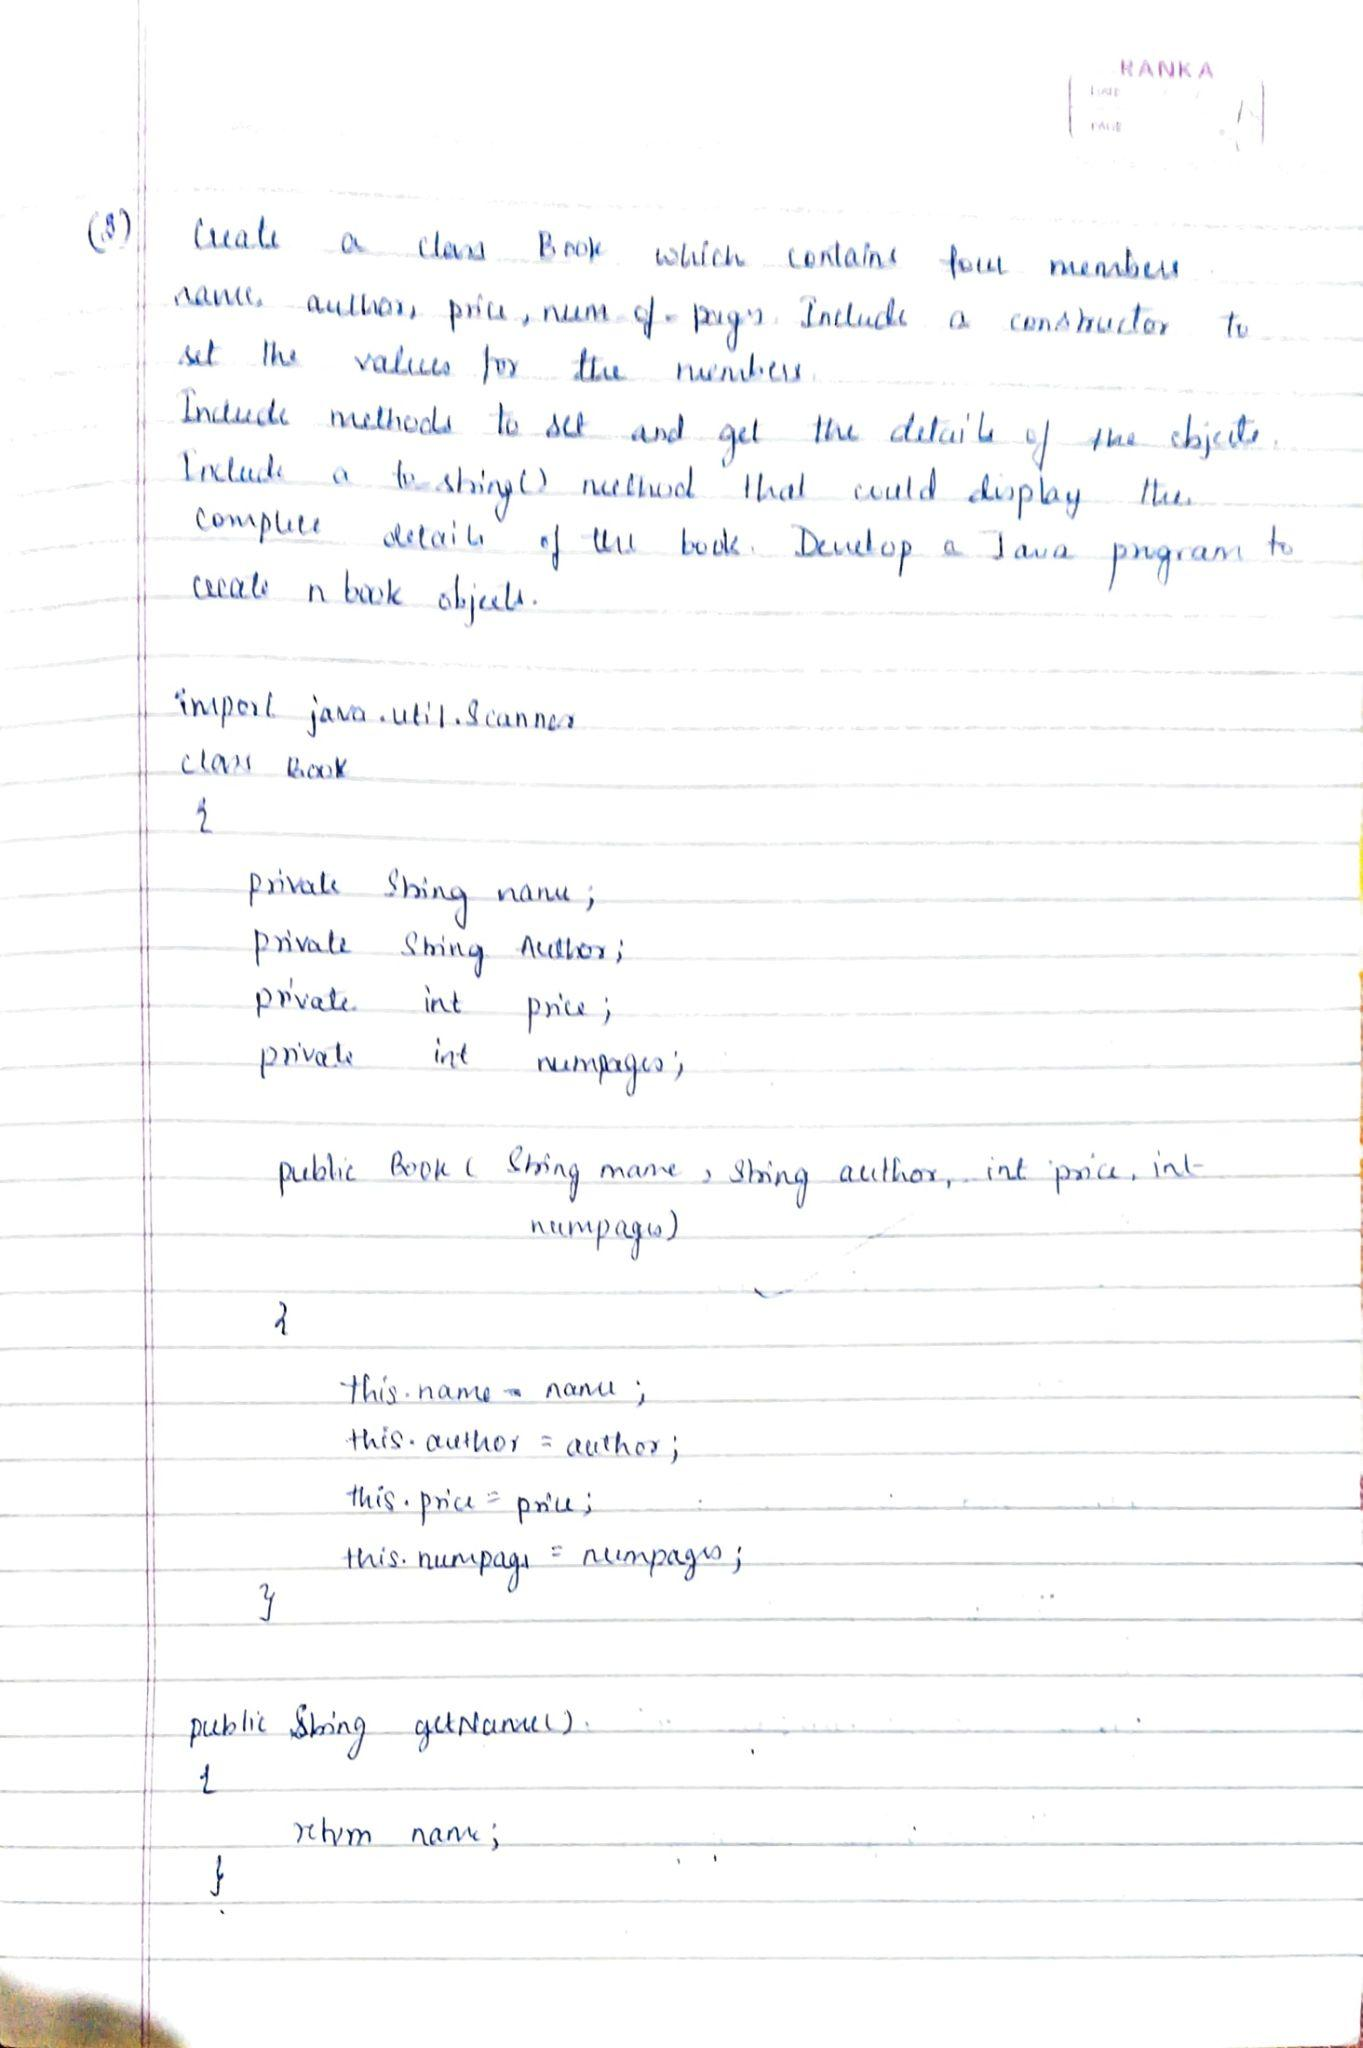 RANKA
DATE
PAGE
(3) Create a class Book which contains four members
name, author, price, num-of-pages. Include a constructor to
set the values for the members.
Include methods to set and get the details of the objects.
Include a to-string() method that could display the
complete details of the book. Develop a Java program to
create n book objects.
import java.util.Scanner
class Book
{
private String name;
private String Author;
private int price;
private int numpages;
public Book ( String name, String author, int price, int
numpages)
{
this.name = name;
this.author = author;
this.price = price;
this.numpags = numpages;
}
public String getName().
{
return name;
}